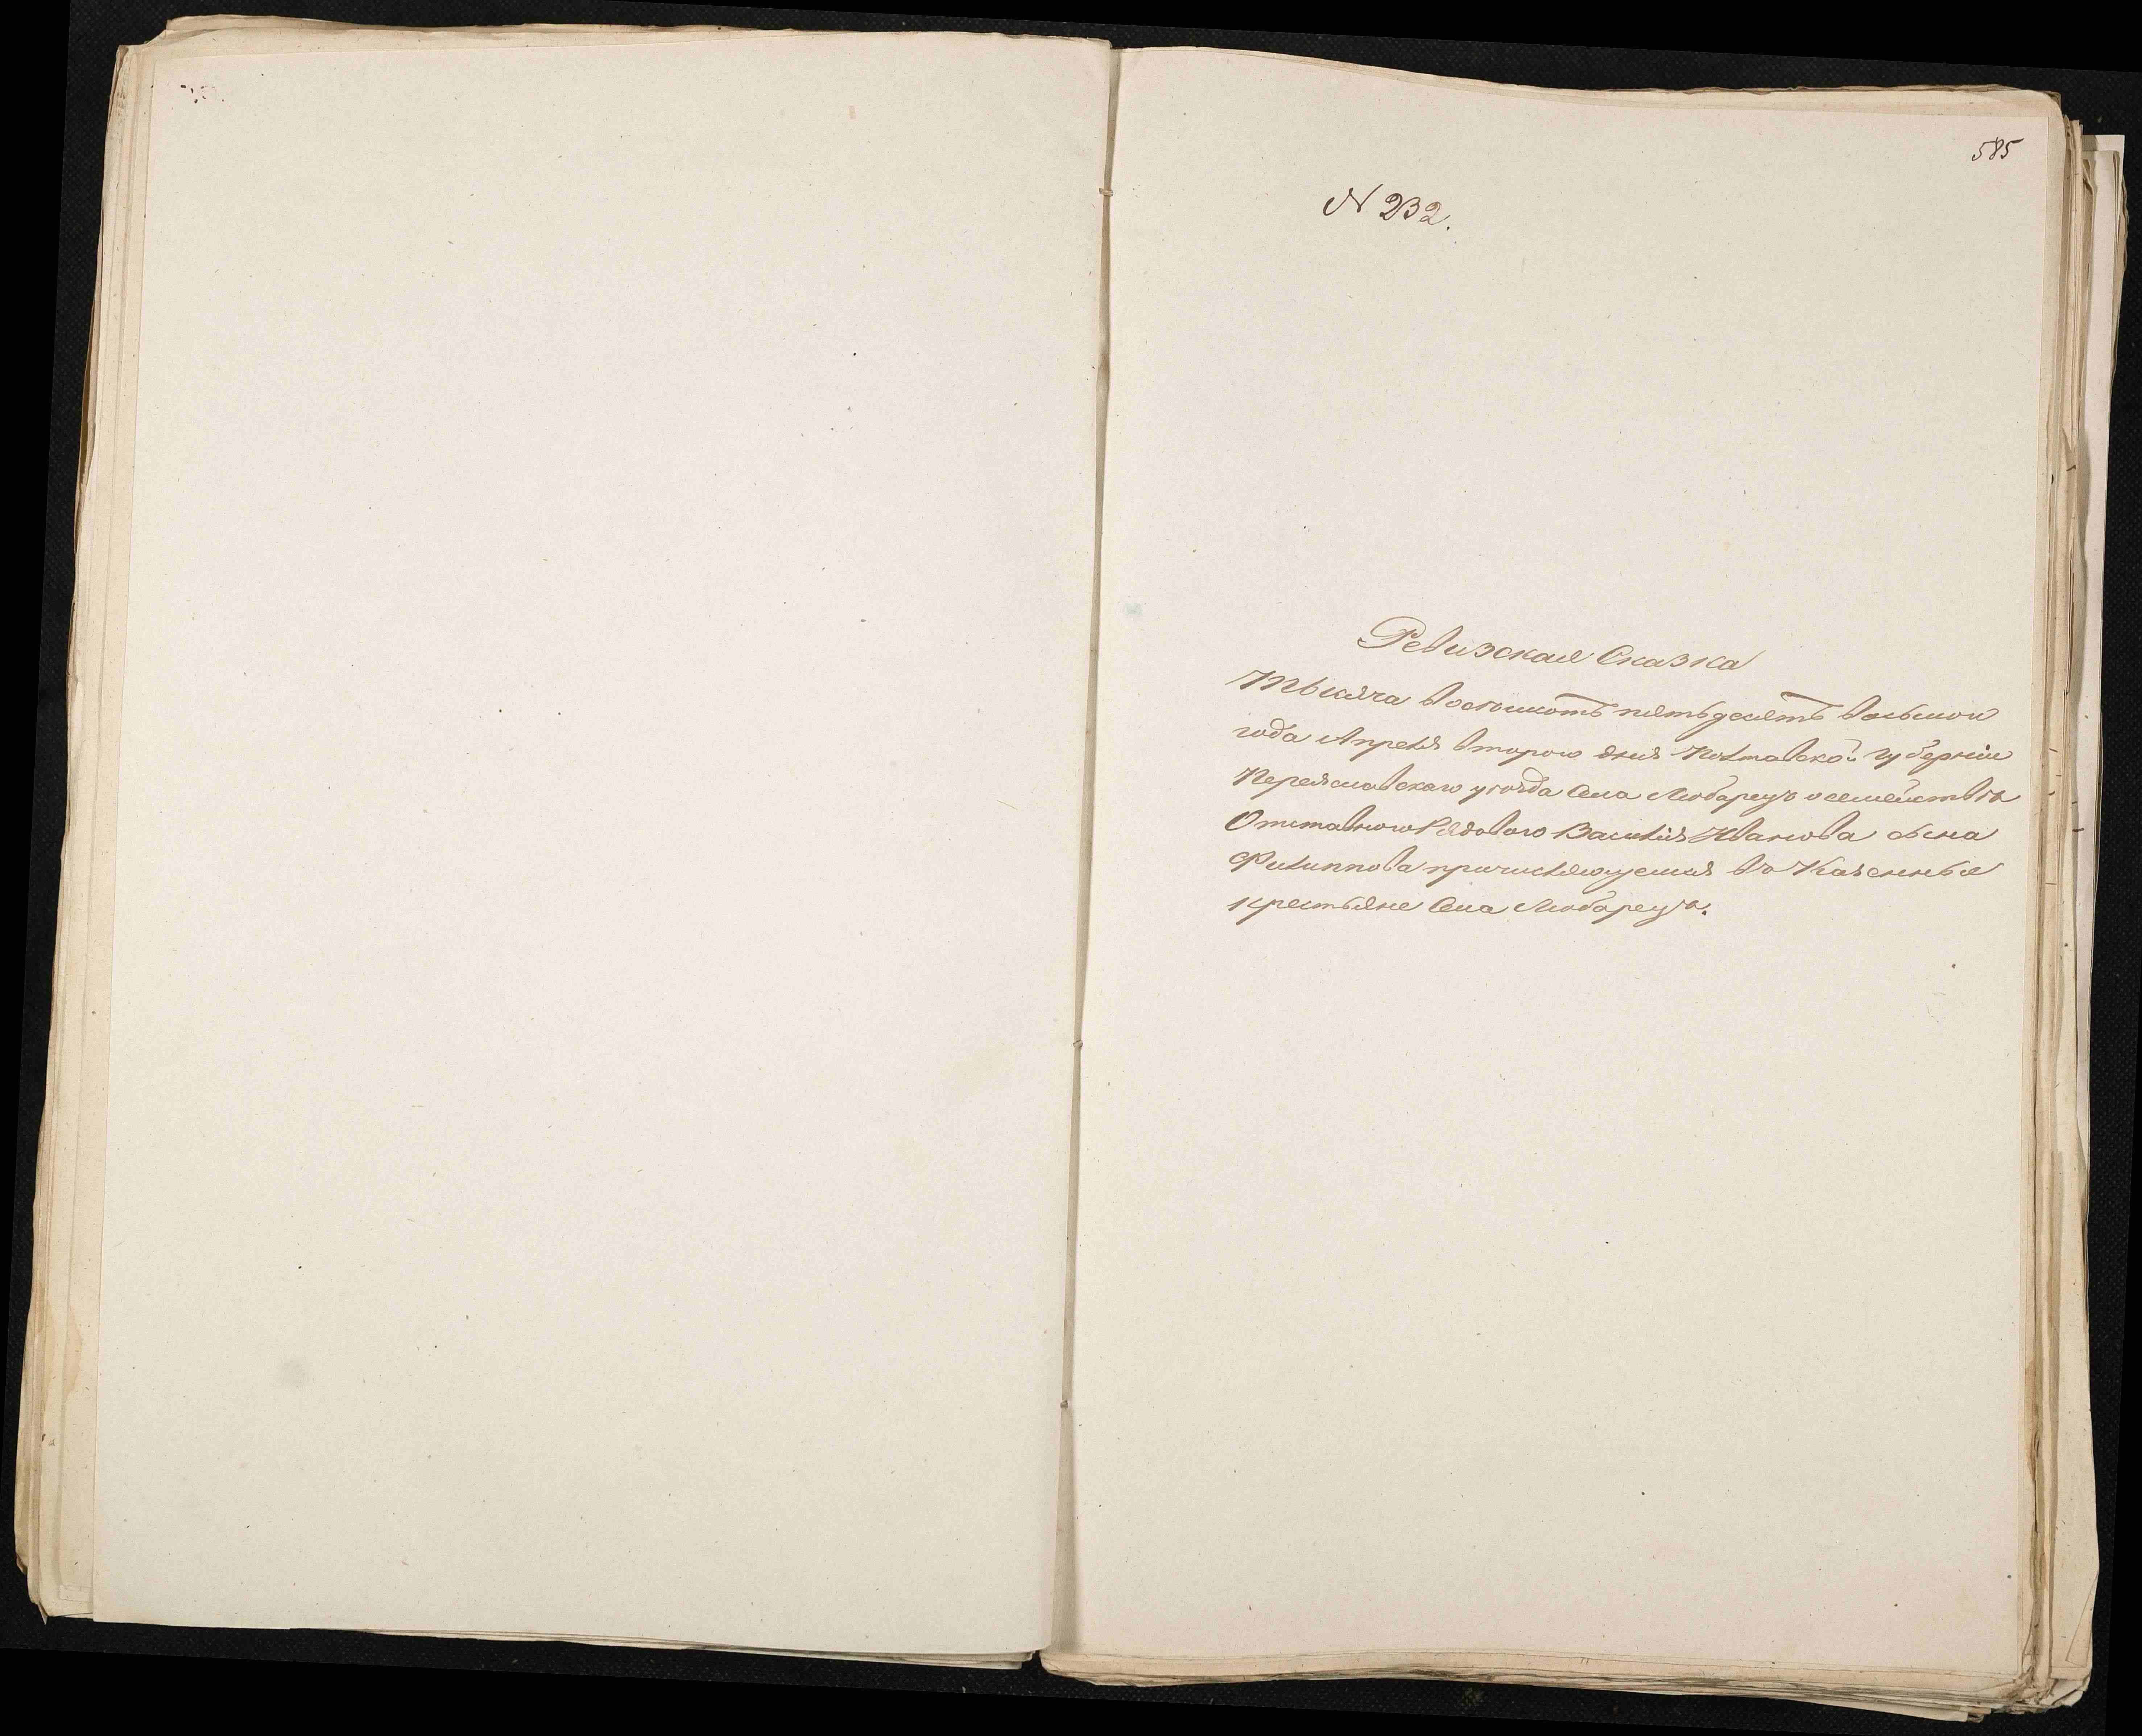 585
N 232.
Ревизская Сказка
Тысяча восемсотъ пятьдесятъ восьмои
года Апреля второго дня Полтавской губерніи
Переяславскаго уѣзда Села Любарецъ о семействѣ
Отставного Рядового Василія Иванова сына
Филиппова причисляющемся въ Казенные
крестьяне Села Любарецъ.